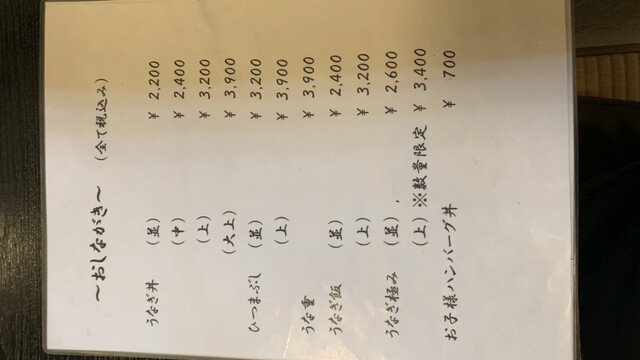 ～おしながき～ (全て税込み)
うなぎ丼 (並) ¥ 2,200
(中) ¥ 2,400
(上) ¥ 3,200
(大上) ¥ 3,900
ひつまぶし (並) ¥ 3,200
(上) ¥ 3,900
うな重 ¥ 3,900
うなぎ飯 (並) ¥ 2,400
(上) ¥ 3,200
うなぎ極み (並) ¥ 2,600
(上) ※数量限定 ¥ 3,400
お子様ハンバーグ丼 ¥ 700